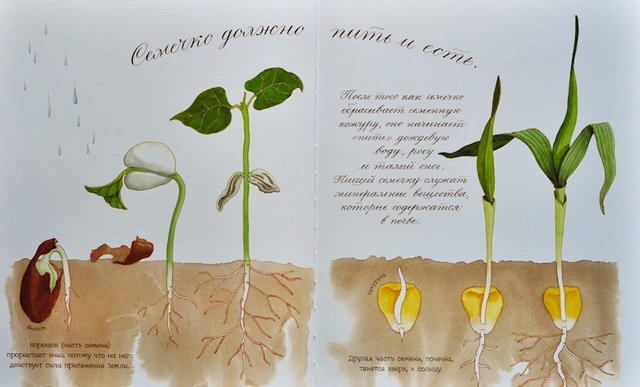 Семечко должно пить и есть.
После того как семечко
сбрасывает семенную
кожуру, оно начинает
«пить» дождевую
воду, росу
и талый снег.
Пищей семечку служат
минеральные вещества,
которые содержатся
в почве.
фасоль
Корешок (часть семени)
прорастает вниз, потому что на него
действует сила притяжения Земли.
кукуруза
Другая часть семени, почечка,
тянется вверх, к солнцу.